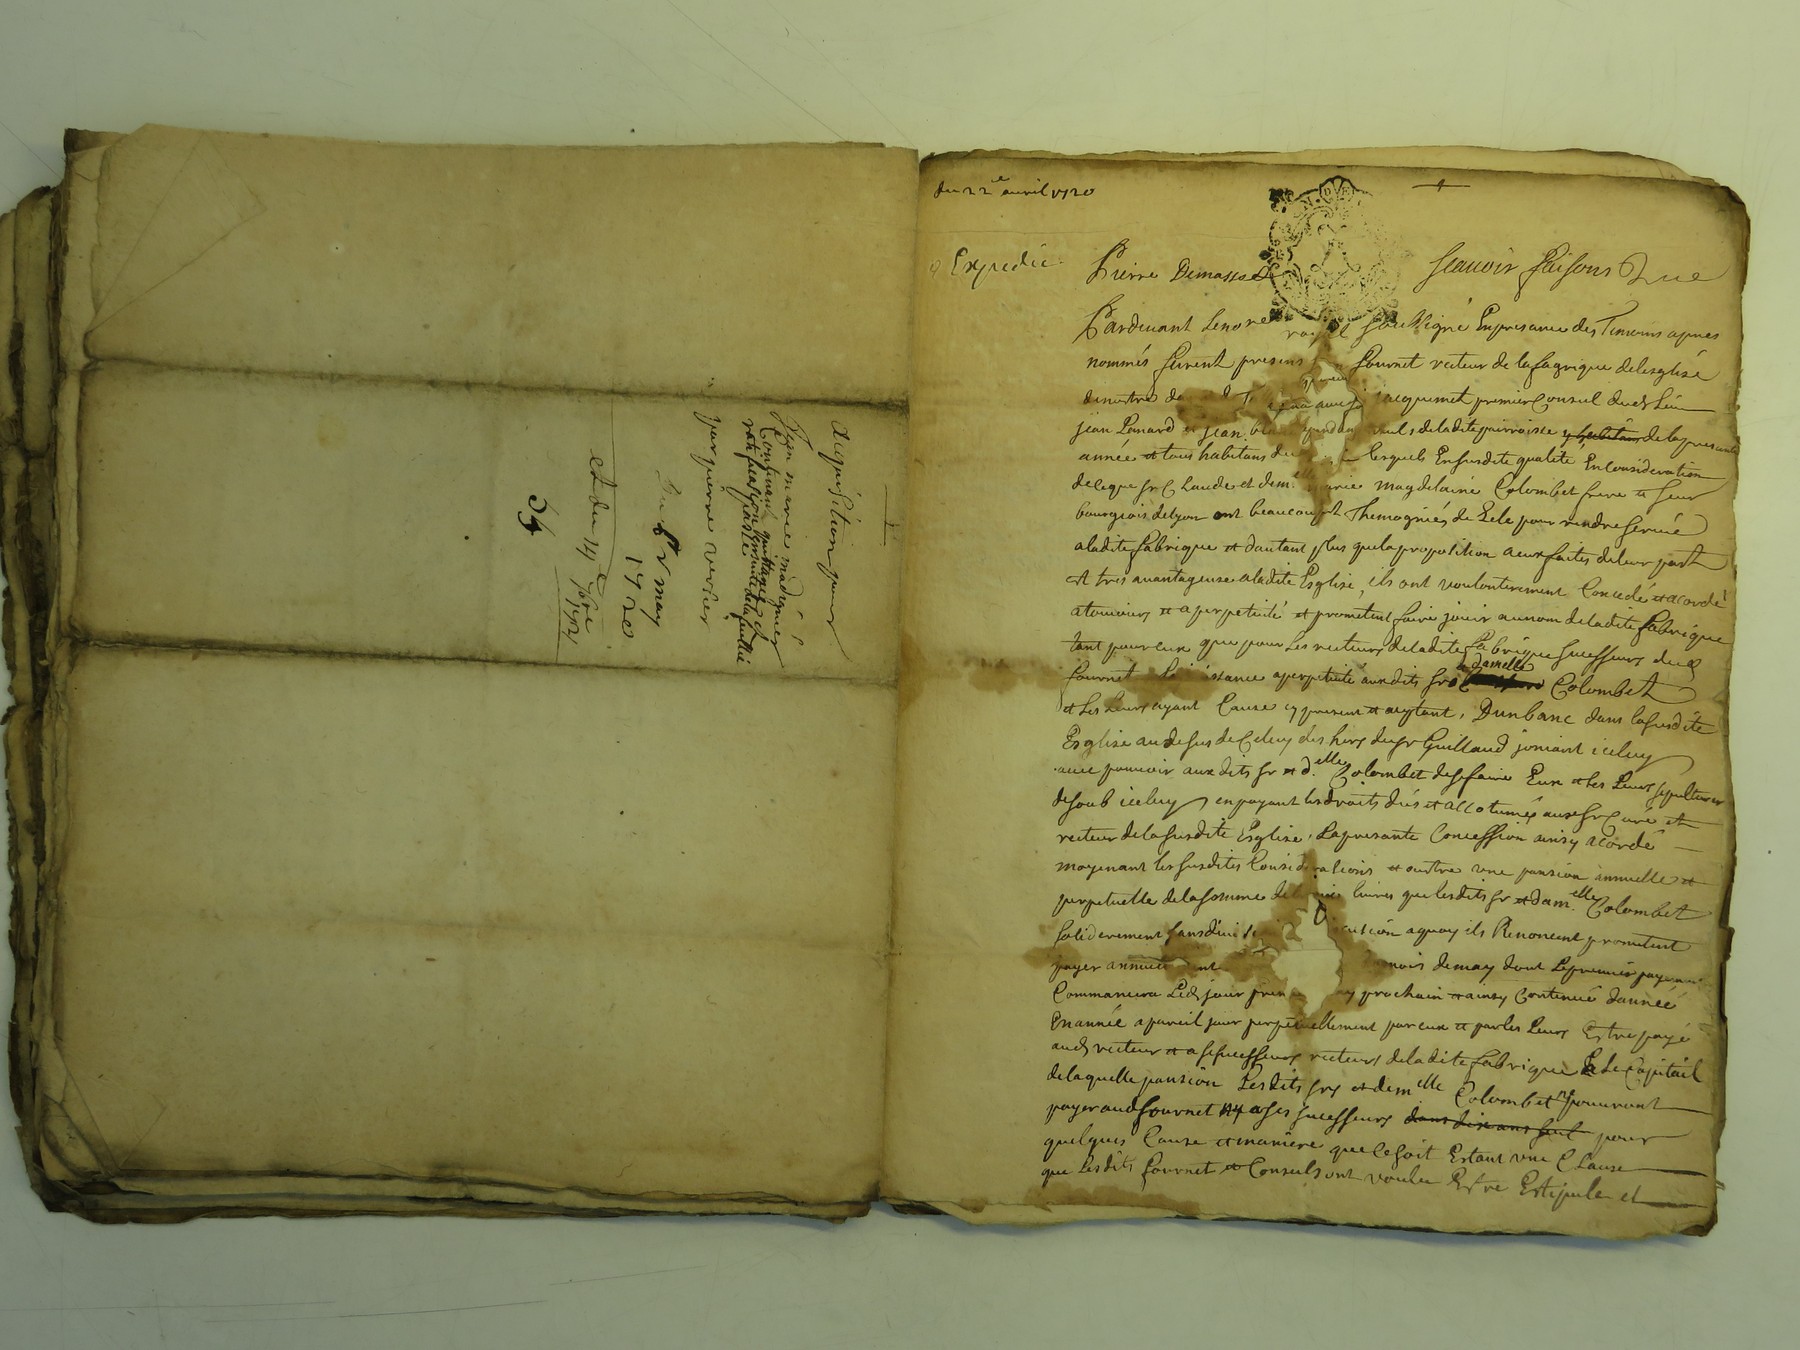 acquisition pour
Jean marie madignier
Contenant quittance et
ratification ensuite de la faillie
passée
par pierre verrier
Du 5 may
1720
et du 14e 7bre
1721
34
du 22e avril 1720
Expedié
Pierre Demasso Scavoir faisons Que
Pardevant Le no.re royal soussigné En presance des Temoins apres
nommés furent presens fournet recteur de la fagrique de lesglize
de nostre jacquemet premier Consul dud. Lieu
jean Panard et jean de ladite parroisse y habitans de la presante
année et tous habitans du lesquels En susdite qualité En Consideration
de ce que Sr Claude et dem.elle marie magdelaine Colombet frere et seur
bourgeois de lyon ont beaucoupt Themogniés de Zele pour rendre service
a ladite fabrique et dautant plus que la proposition a eux faites de leur part
est tres avantageuse a ladite Esglise, ils ont voulontierement Concedé et acordé
a toujours et a perpetuité et prometent faire jouir au nom de ladite fabrique
tant pour eux que pour Les recteurs de ladite fabrique sucesseurs dud.
fournet a perpetuité auxdits Sr & damelle Colombet
et Les Leurs ayant Cause cy present et aceptant, Dun banc dans la susdite
Esglise au desus de Celuy des hers du Sr Guillaud joniant iceluy
avec pouvoir aux dits Sr et d.elle Colombet de se faire Eux et les Leurs sepulturer
desoub iceluy en payant les droits dus et accotumés aux Sr Curé et
recteur de la susdite Esglise, La presante Concession ainsy acordé
moyenant les susdites Considerations et outtre une pansion annuelle et
perpetuelle de la somme de livres que lesdits Sr et dam.elle Colombet
soliderement sans division a quoy ils Renoncent prometent
payer annuellement mois de may dont Le premier payement
Commancera Led. jour prochain et ainsy Continué dannée
En année a pareil jour perpetuellement par eux et par les Leurs Estre payé
aud. recteur et a ses sucesseurs recteurs de ladite fabrique & Le Capitail
de laquelle pansion Lesdits Srs et dem.elle Colombet n'pouront
payer aud fournet ny a ses sucesseurs dans dix ans seul pour
quelques Cause et maniere que Ce soit Estant une Clause
que Lesdits fournet et Consuls ont voulu Estre Estipulée et